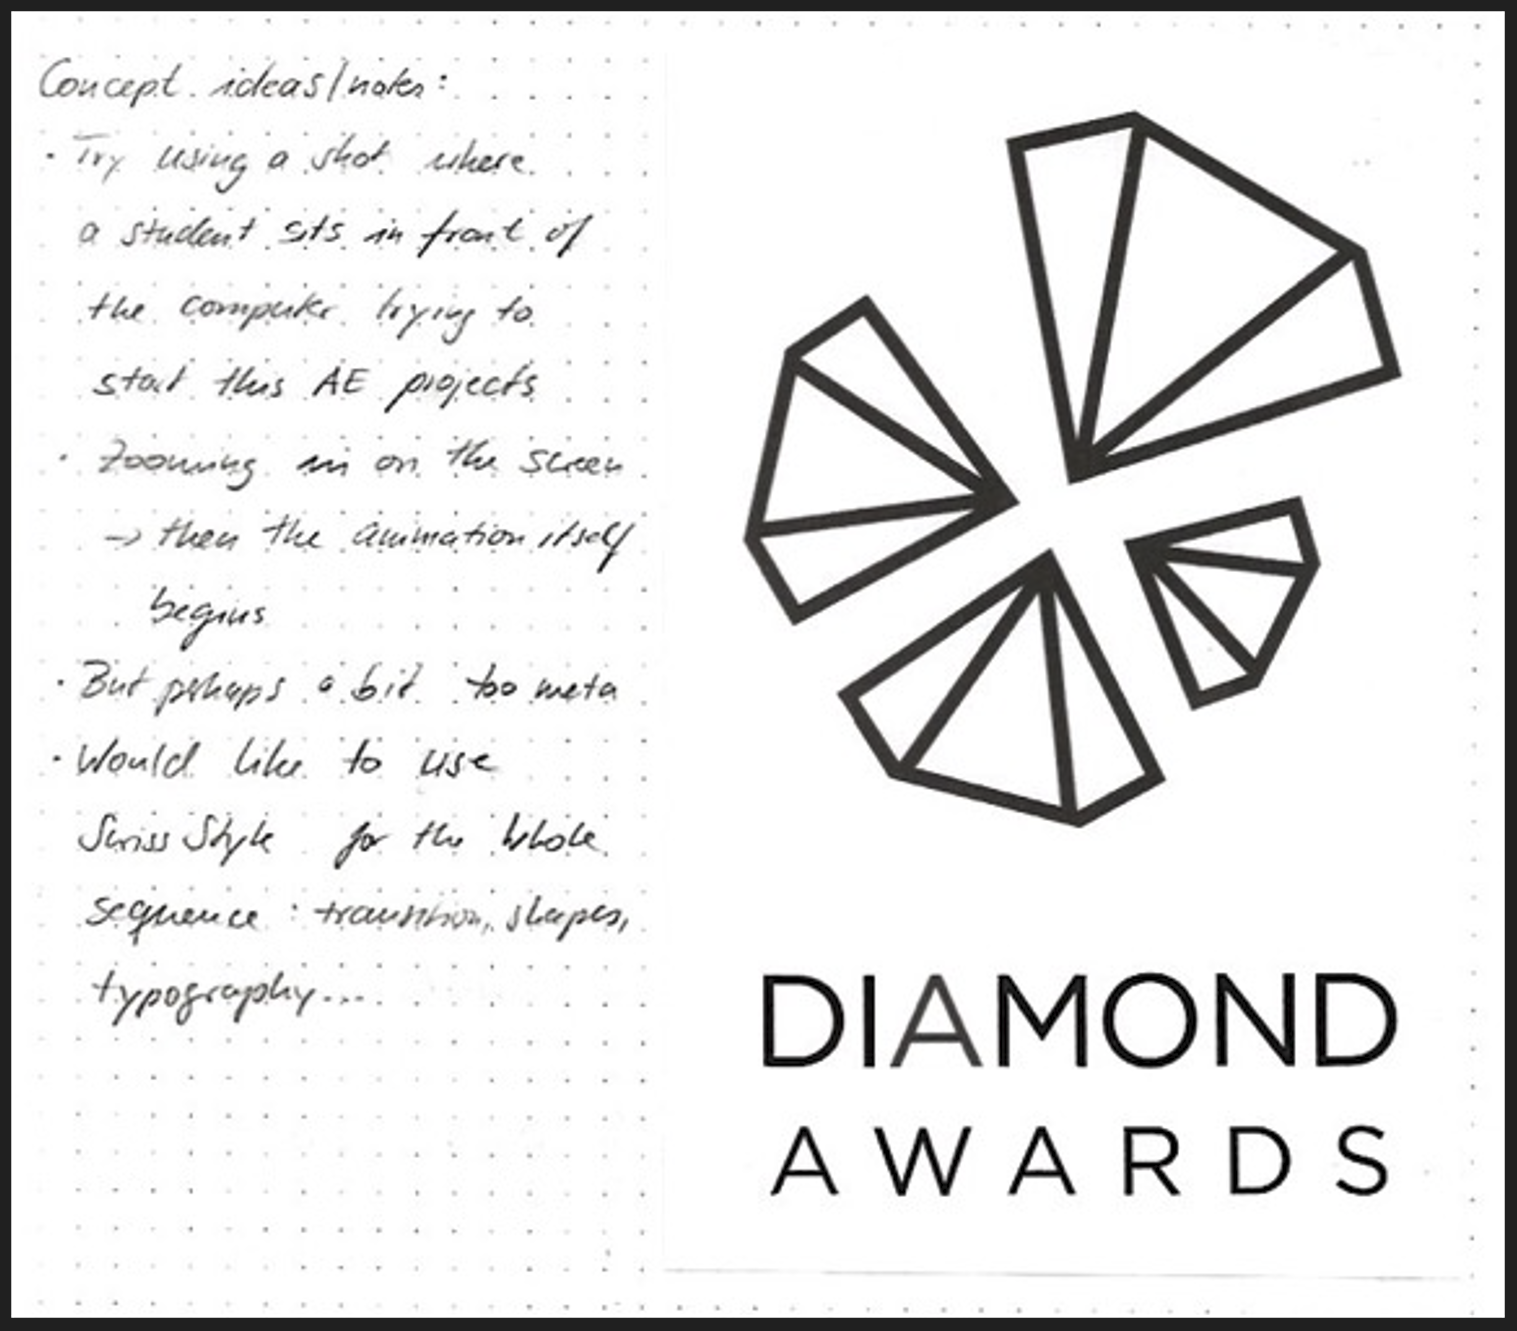 Concept ideas/notes:
· Try using a shot where
a student sits in front of
the computer trying to
start this AE projects
· Zooming in on the screen
→ then the animation itself
begins
· But perhaps a bit too meta
· Would like to use
Swiss Style for the whole
sequence: transition, shapes,
typography...
DIAMOND
AWARDS